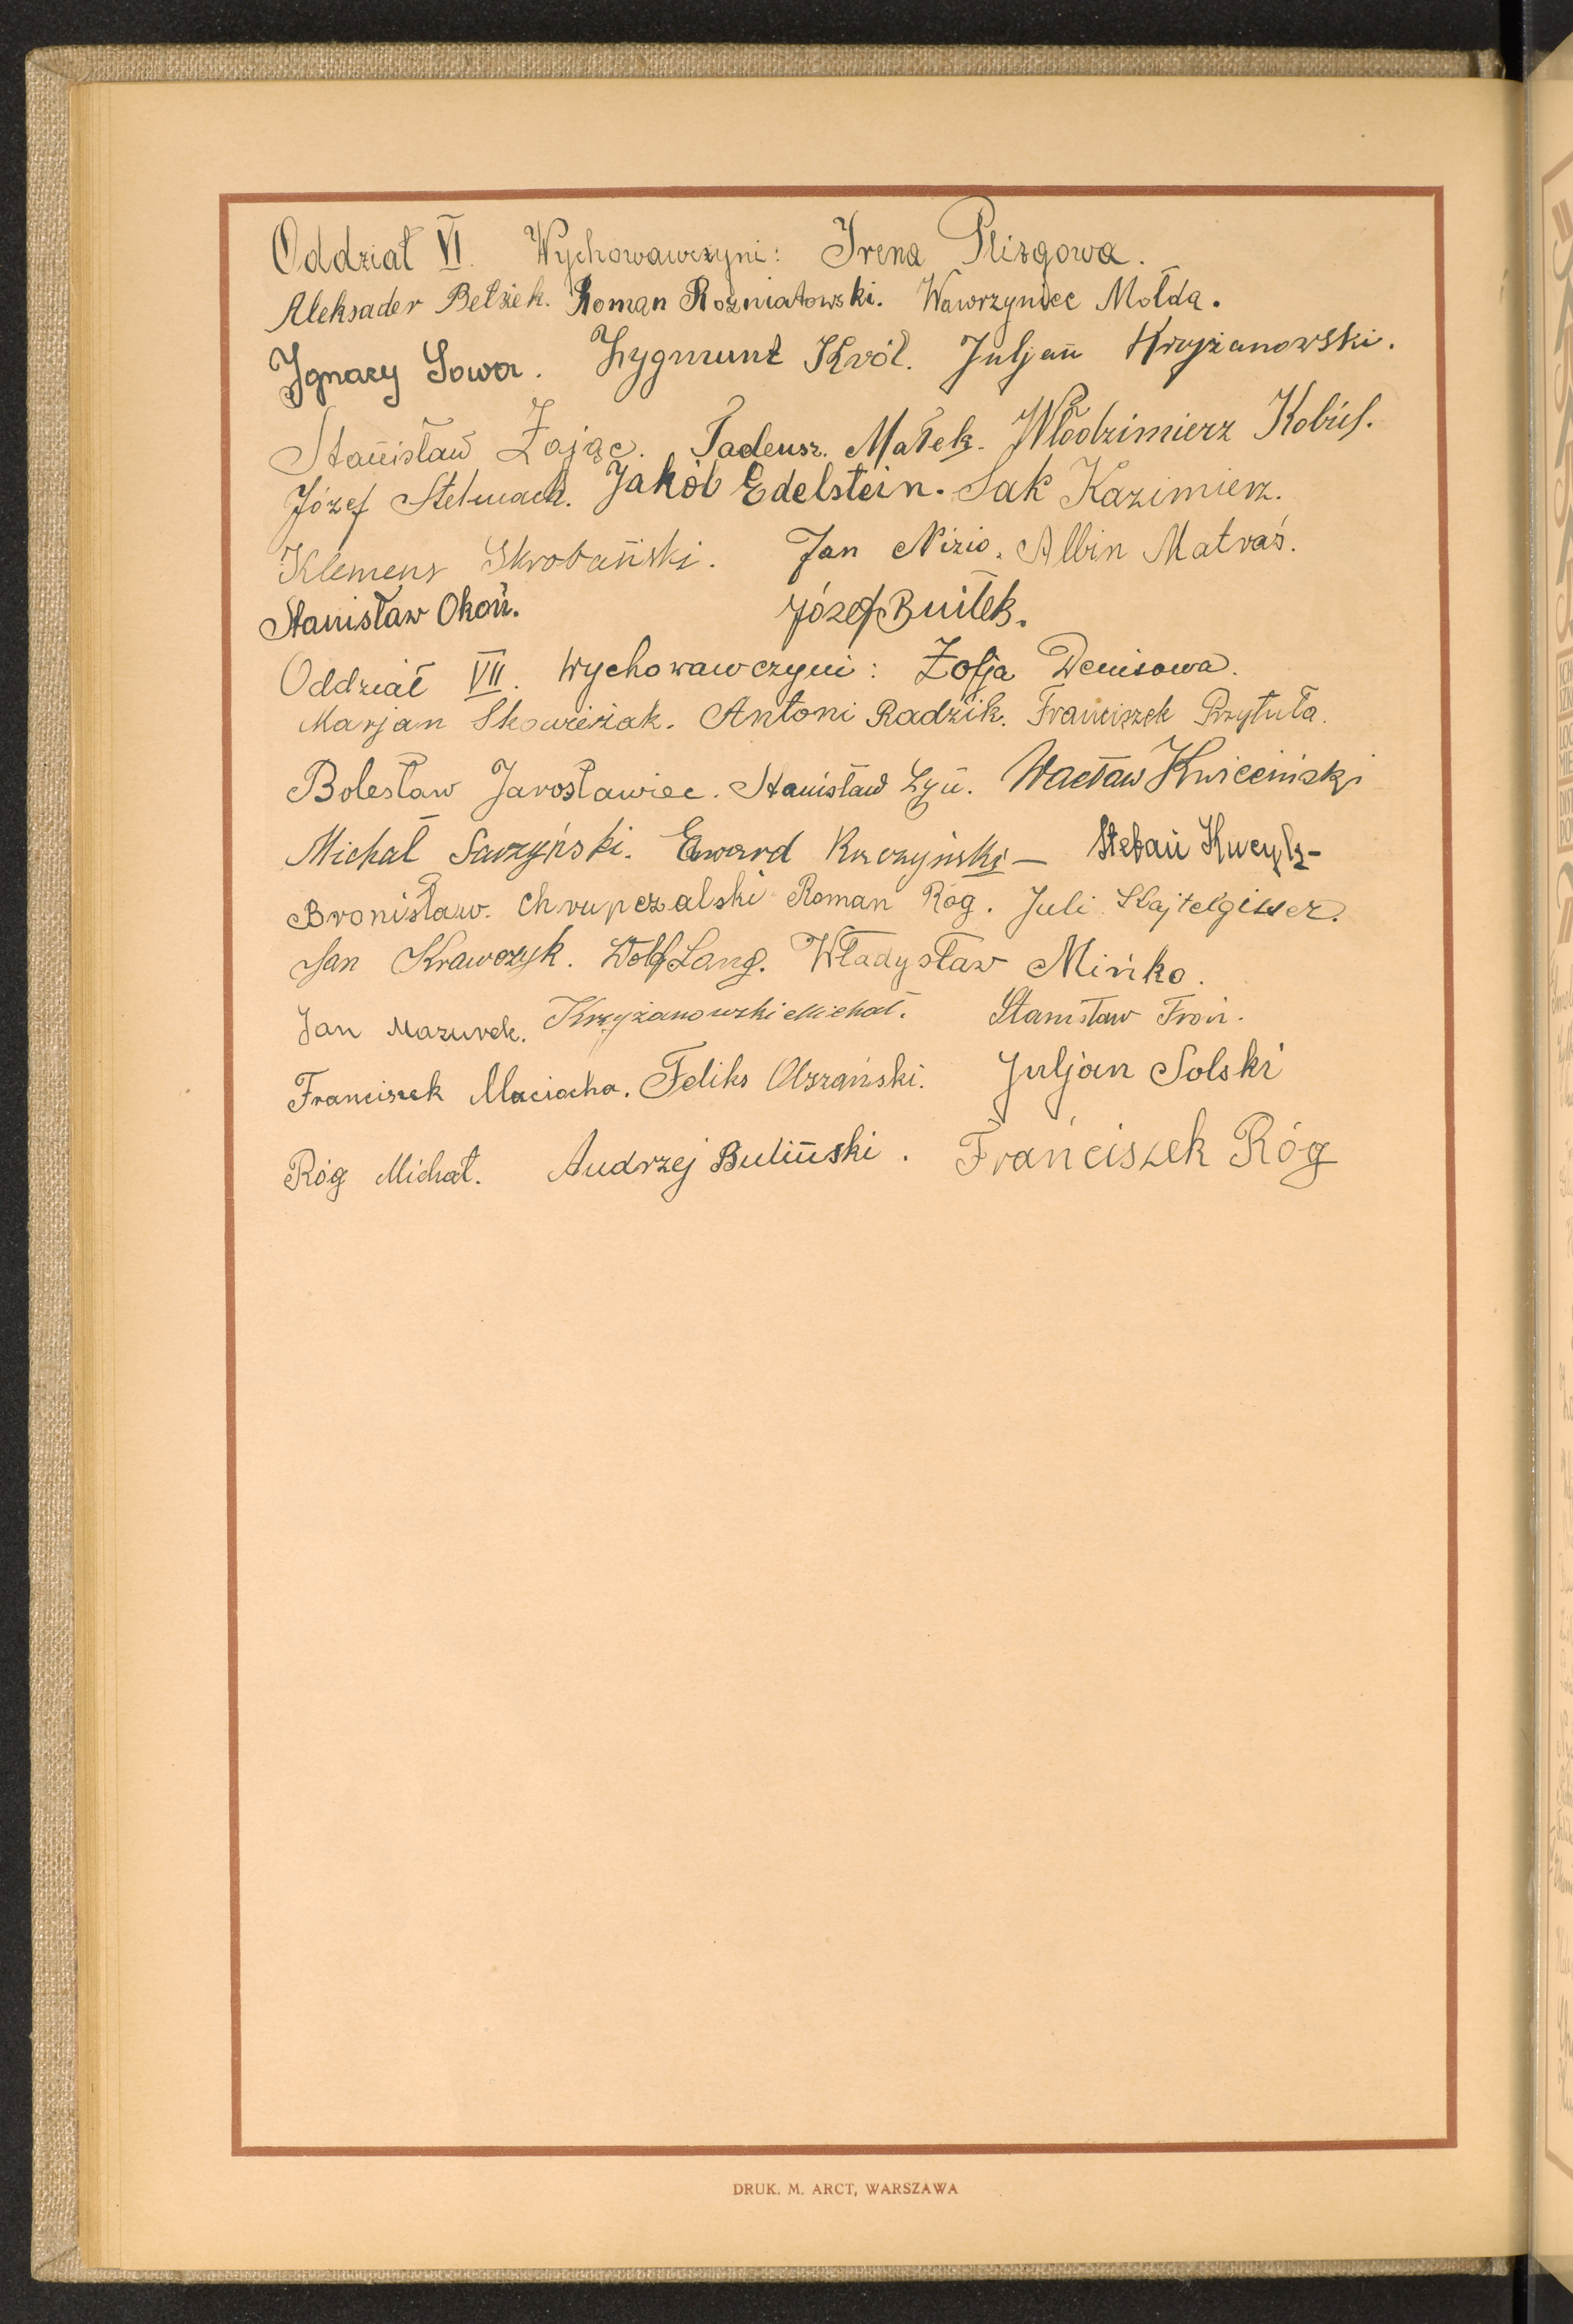 Oddział VI. Wychowawczyni: Irena Plizgowa.
Aleksader Bełzek. Roman Rozniatowski. Wawrzyniec Mołda.
Ignacy Sowa. Zygmunt Król. Juljan Krzyżanowski.
Stanisław Zając. Tadeusz. Małek. Włodzimierz Kobiel.
Józef Stelmach. Jakób Edelstein. Sak Kazimierz.
Klemens Skrobański. Jan Nizio. Albin Matraś.
Stanisław Okoń. Józef Butłek.
Oddział VII. Wychowawczyni: Zofja Denisowa.
Marjan Skowieżak. Antoni Radzik. Franciszek Przytuła.
Bolesław Jarosławiec. Stanisław Łyń. Wacław Kwieciński
Michał Sarzyński. Edward Kuczyński – Stefan Kucyk –
Bronisław. Chrupczalski Roman Róg. Juli
Jan Krawczyk. Wolf Lang. Władysław Mińko.
Jan Mazurek. Krzyżanowski Michał. Stanisław Froń.
Franciszek Maciocha. Feliks Olszański. Juljan Solski
Róg Michał. Andrzej Buliński. Franciszek Róg
DRUK. M. ARCT, WARSZAWA